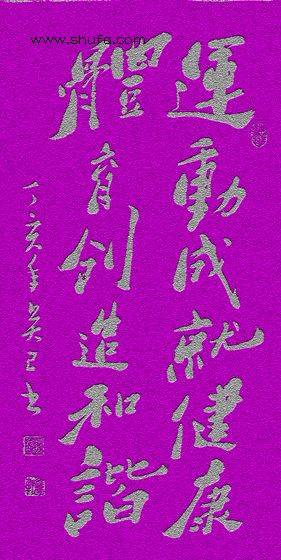 www.shufa.com
運動成就健康
體育創造和諧
丁亥年吳已書